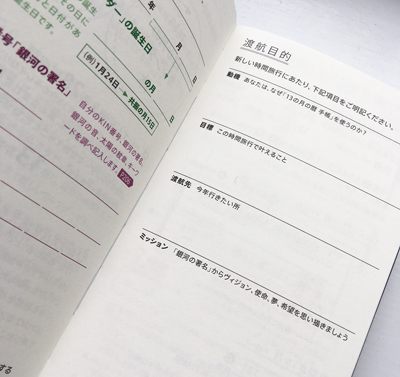 その日に
と日付があ
生日です。
ダー」の誕生日
年 月
日
の月
(例)1月24日
共振の月15日
号「銀河の署名」
自分のKIN番号、銀河の署名、
銀河の音、太陽の紋章、キーワ
ートを調べ記入します
する
渡航目的
新しい時間旅行にあたり、下記項目をご明記ください。
動機 あなたは、なぜ「13の月の暦 手帳」を使うのか?
目標 この時間旅行で叶えること
渡航先 今年行きたい所
ミッション 「銀河の署名」からヴィジョン、使命、夢、希望を思い描きましょう